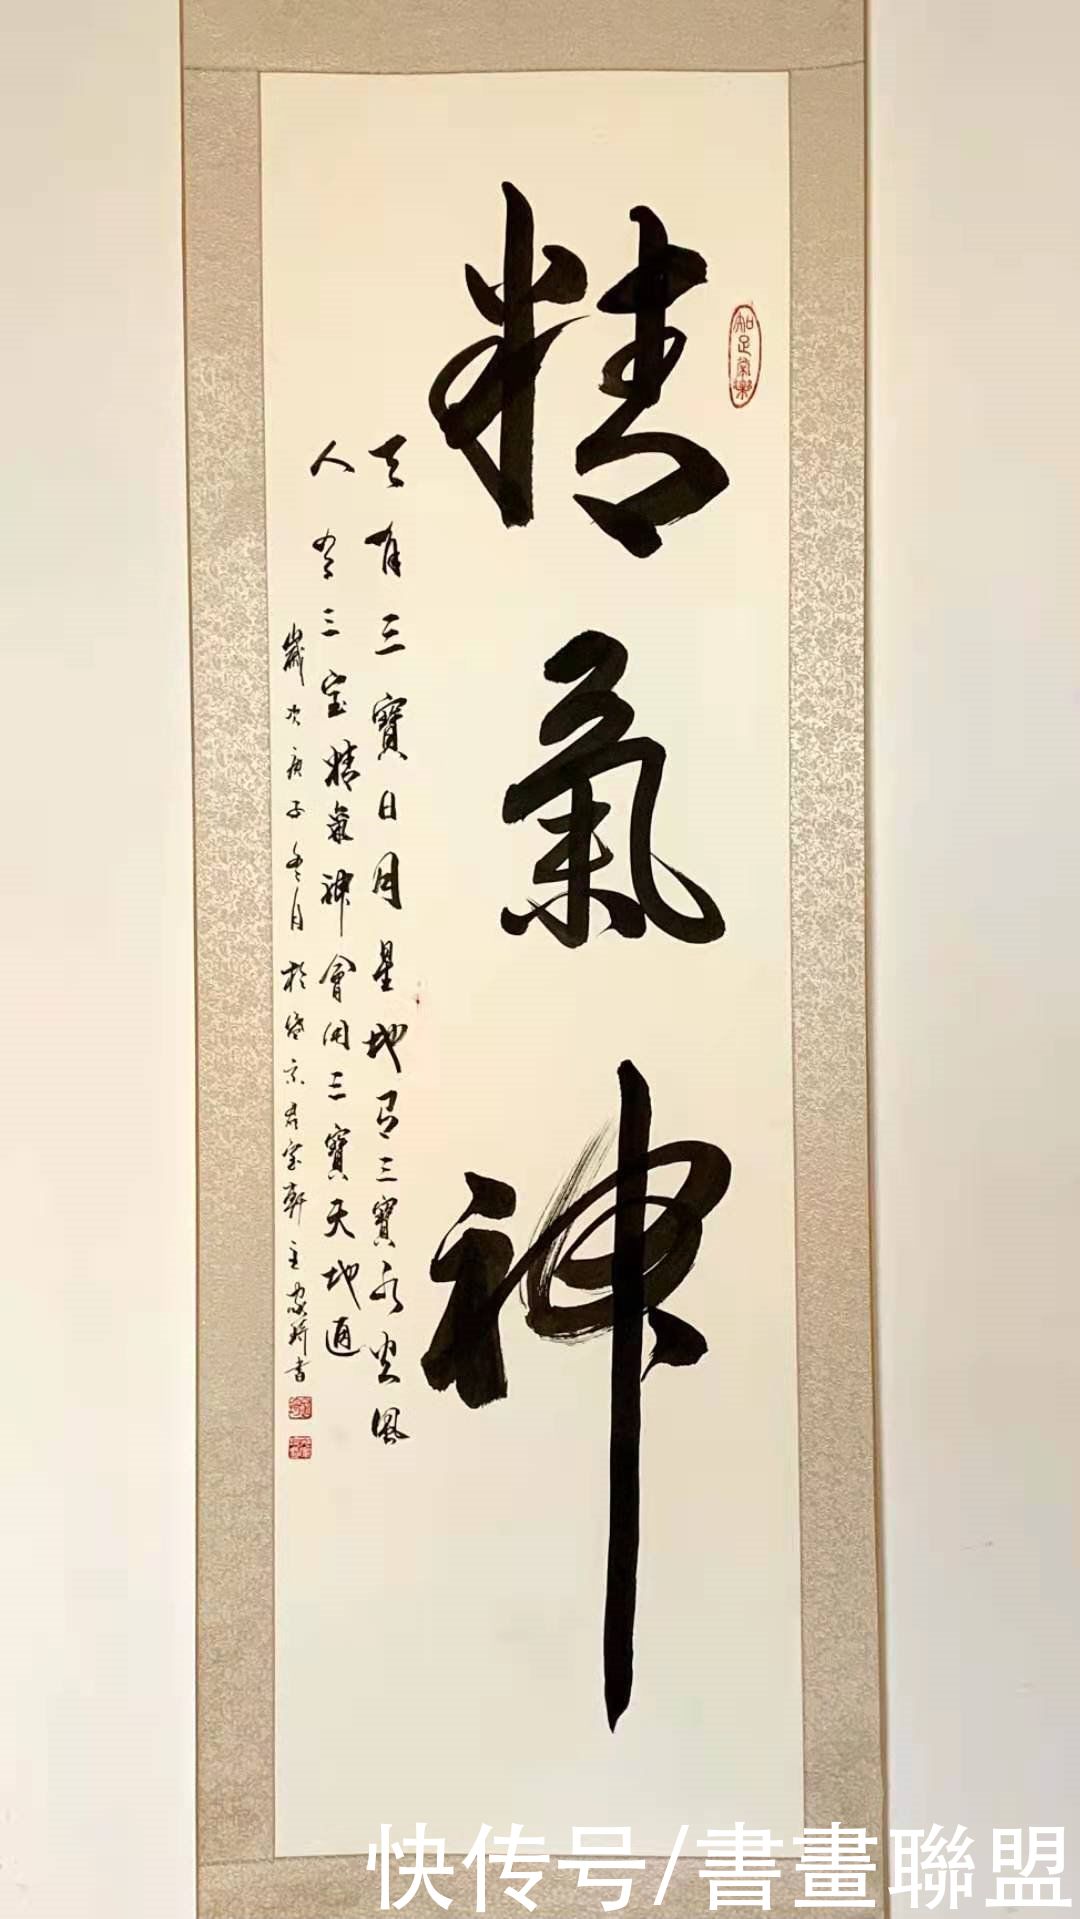 精氣神
知足常樂
天有三寶日月星地有三寶水火風
人有三宝精氣神會用三寶天地通
歲次庚子冬月於
京
宝軒主家琦書
快传号/書畫聯盟